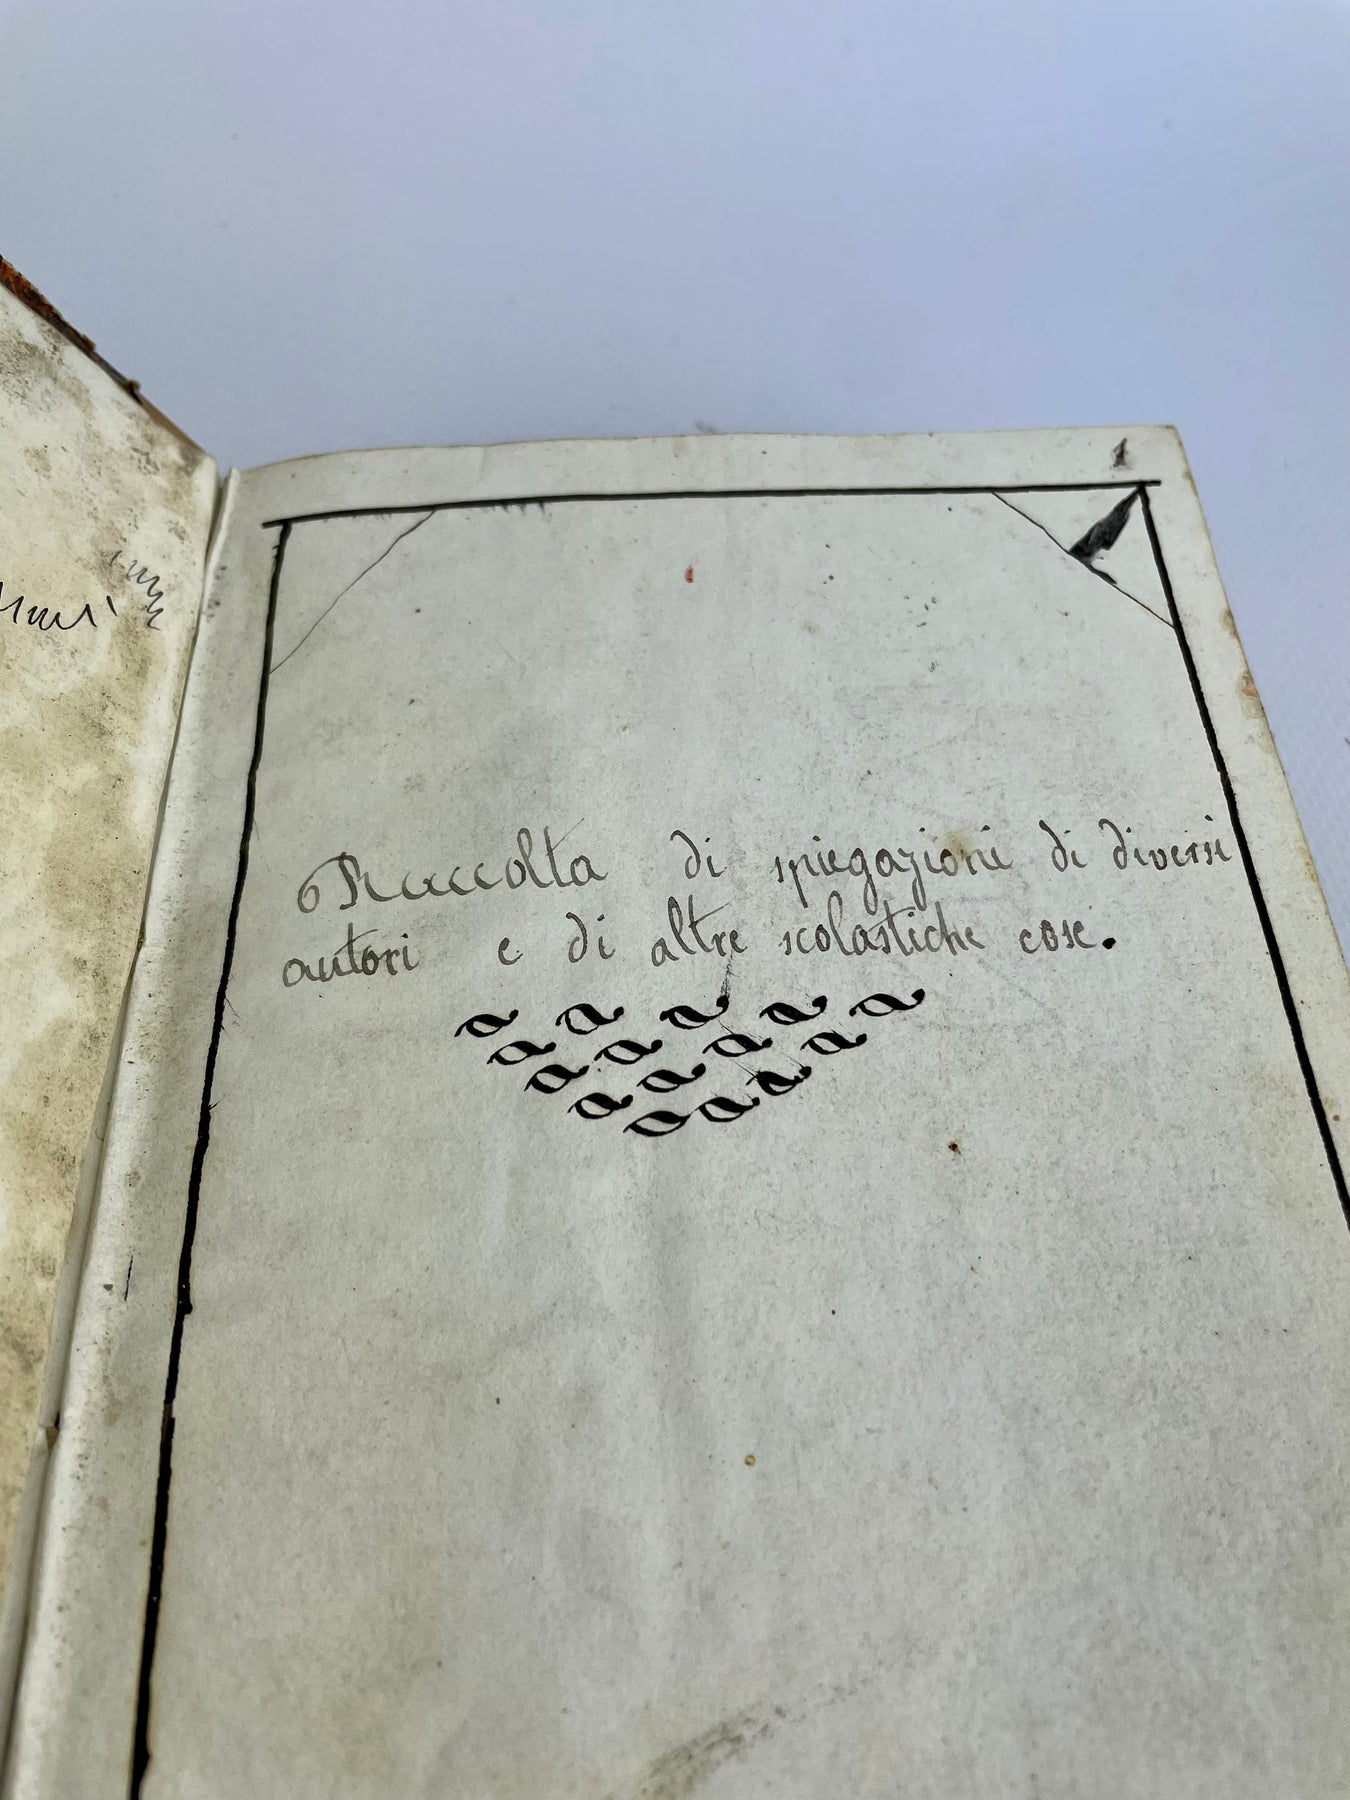 1
Raccolta di spiegazioni di diversi
autori e di altre scolastiche cose.